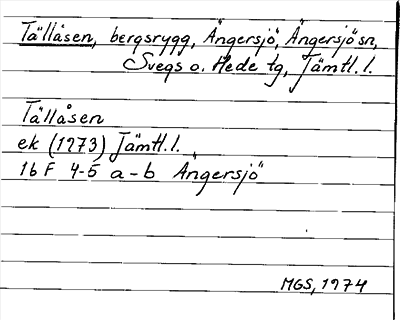 Tällåsen, bergsrygg, Ängersjö, Ängersjö sn,
Svegs o. Hede tg, Jämtl. l.
Tällåsen
ek (1973) Jämtl. l.
16 F 4-5 a-b Ängersjö
MGS, 1974